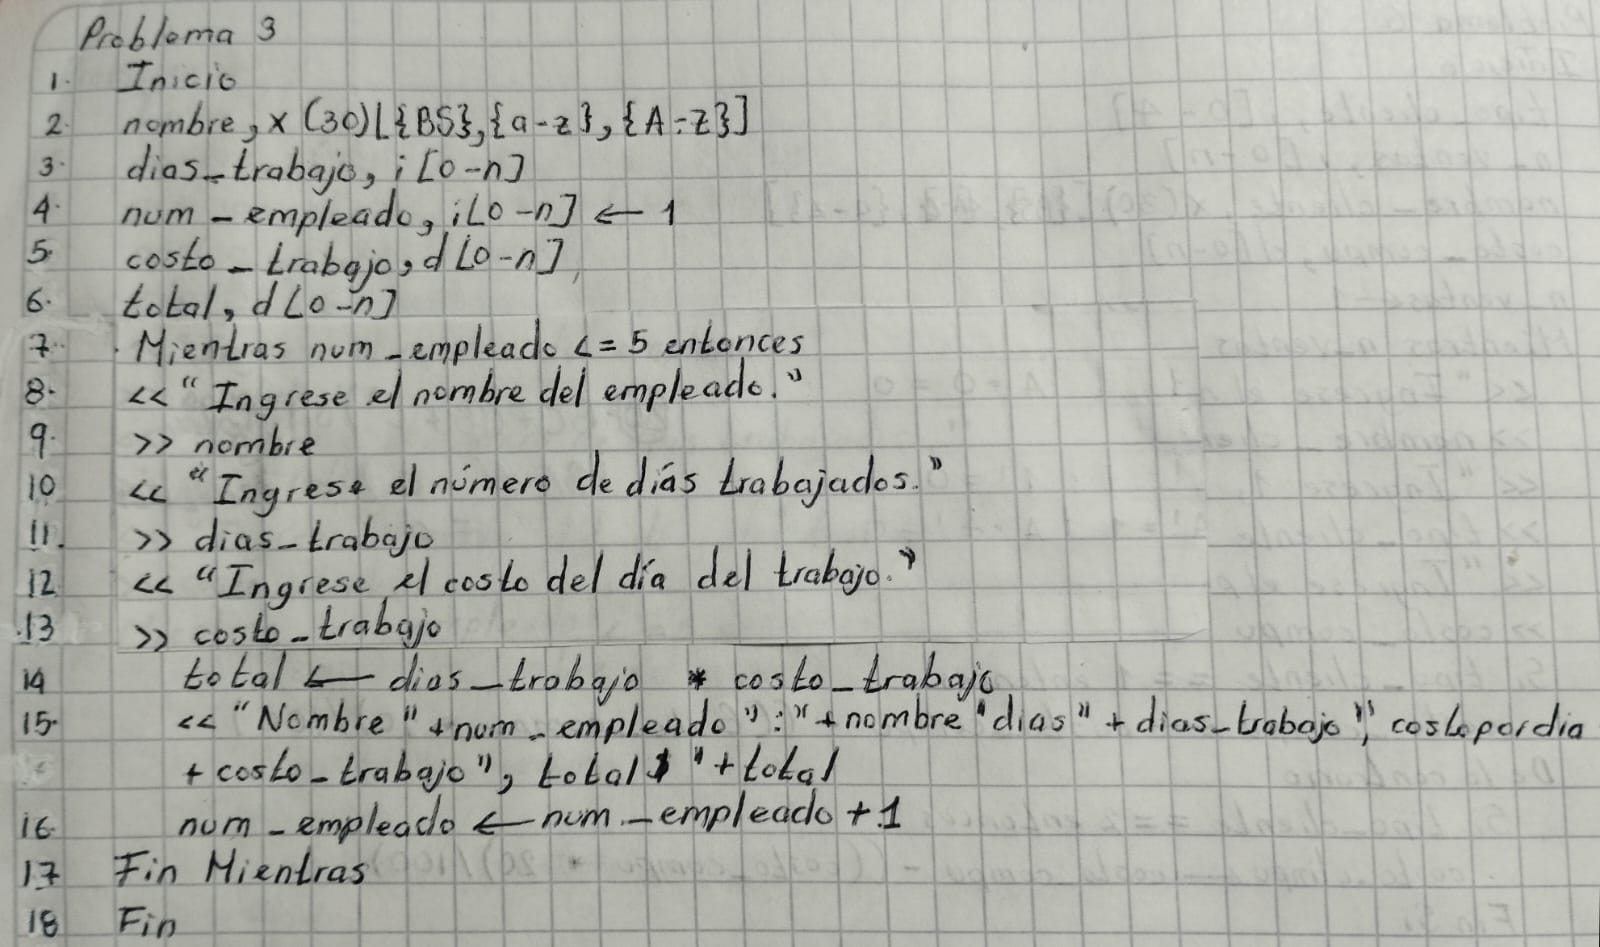 Problema 3
1. Inicio
2. nombre, x (30)[{BS},{a-z},{A-Z}]
3. dias_trabajo, i [0-n]
4. num_empleado, i[0-n] ← 1
5. costo_trabajo, d[0-n]
6. total, d[0-n]
7. Mientras num_empleado <= 5 entonces
8. << "Ingrese el nombre del empleado."
9. >> nombre
10 << "Ingrese el número de diás trabajados."
11. >> dias_trabajo
12 << "Ingrese el costo del día del trabajo."
13 >> costo_trabajo
14 total ← dias_trabajo * costo_trabajo
15. << "Nombre" + num_empleado ":" + nombre "dias" + dias_trabajo ", costo por dia
+ costo_trabajo ", total $ " + total
16. num_empleado ← num_empleado + 1
17 Fin Mientras
18 Fin